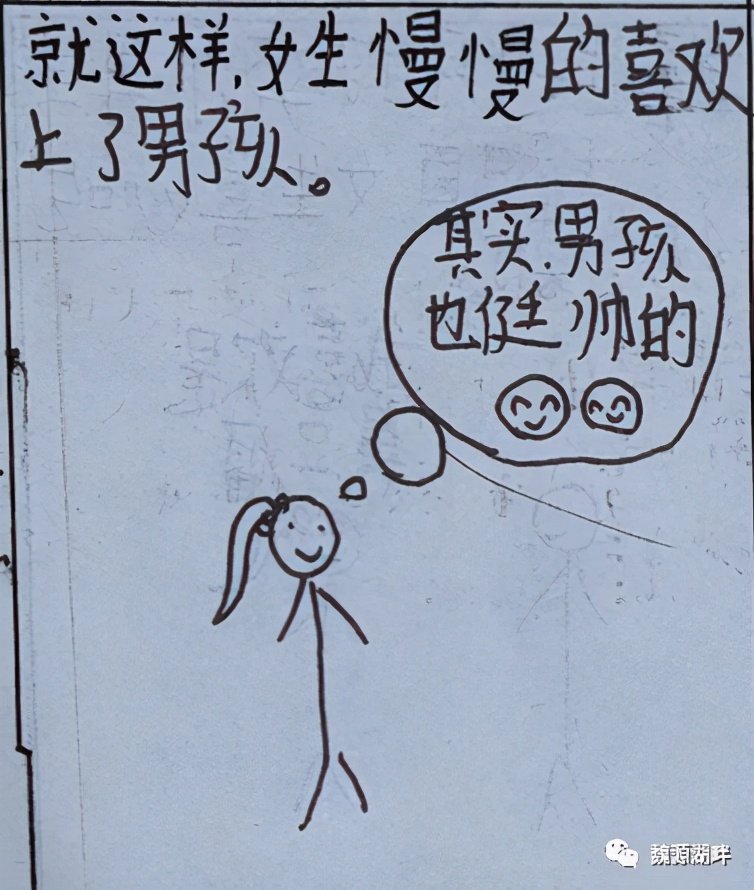 就这样,女生慢慢的喜欢
上了男孩。
其实,男孩
也挺帅的
魏源湖畔